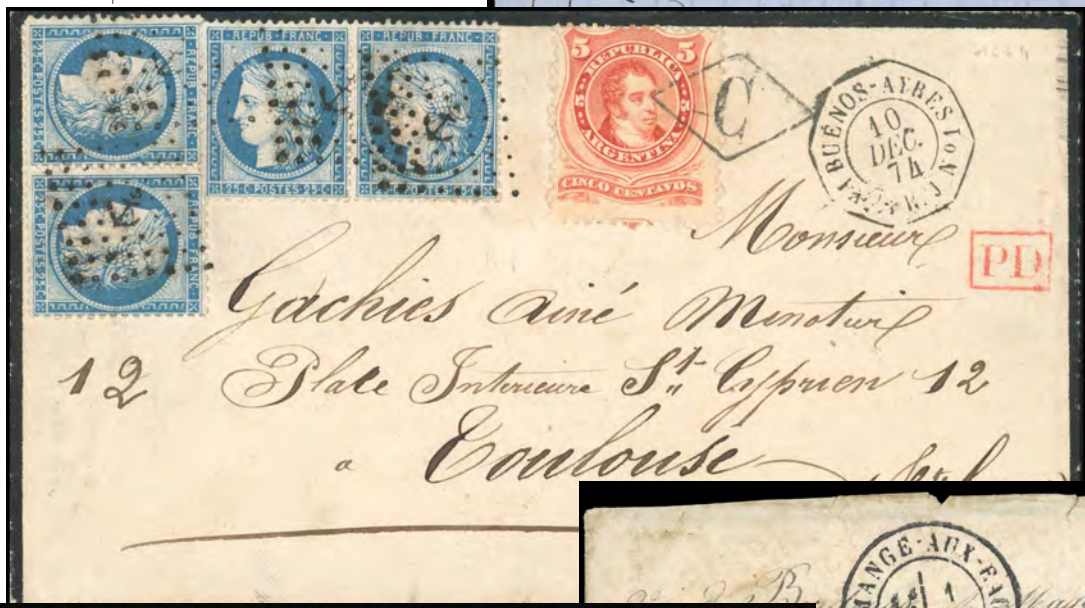 REPUB FRANC
25 C POSTES 25 C
REPUB FRANC
REPUB FRANC
25 C POSTES 25 C
REPUB FRANC
25 C POSTES 25 C
5 5
REPUBLICA
ARGENTINA
5 5
CINCO CENTAVOS
C
BUÉNOS-AYRES
10
DEC.
74
Monsieur
PD
Gachies ainé Minotier
12
Place Interieure St Cyprien 12
a Toulouse
MANGE-AUX-EAU
1